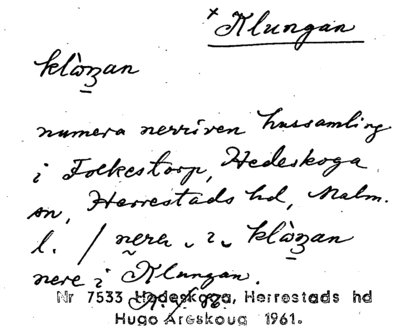 × Klungan
klὼʒan
numera nerriven hussamling
i Folkestorp, Hedeskoga
sn, Herrestads hd, Malm.
l. / nera i klὼʒan
nere i Klungan.
Nr 7533 Hedeskoga, Herrestads hd
Hugo Areskoug 1961.